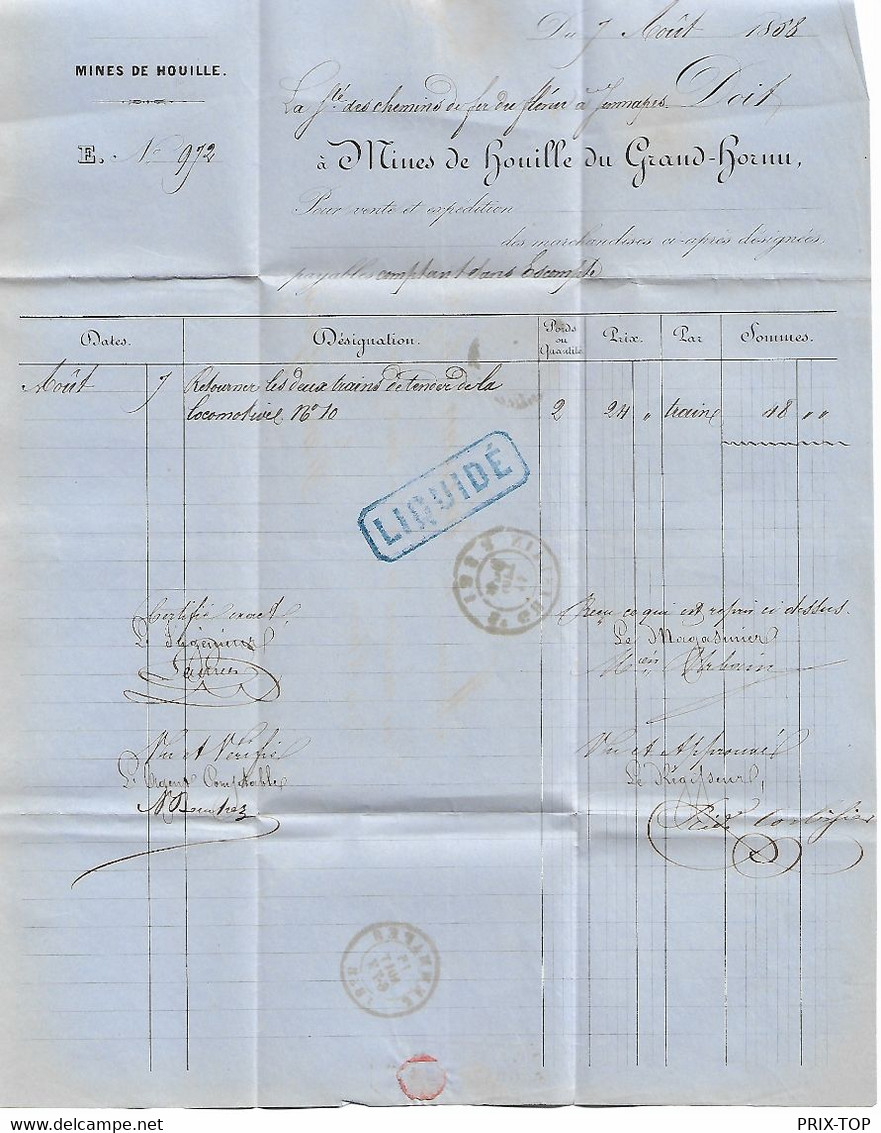 Du 7 Août 1858
MINES DE HOUILLE.
La Sté des chemins de fer du flénu à Jemmapes Doit
E. No 972
à Mines de Houille du Grand-Hornu,
Pour vente et expédition
des marchandises ci-après désignées,
payables comptant sans Escompte
Dates. Désignation. Poids ou Quantité Prix. Par Sommes.
Août 7 Retourner les deux trains de tender de la
locomotive No 10 2 24 " train 48 " "
LIQUIDÉ
Certifié exact, Reçu ce qui est repris ci dessus.
L'Ingénieur Le Magasinier
Urbain
Vu et Vérifié Vu et Approuvé
L'Agent Comptable Le Régisseur,
JEMMAPES
PRIX-TOP